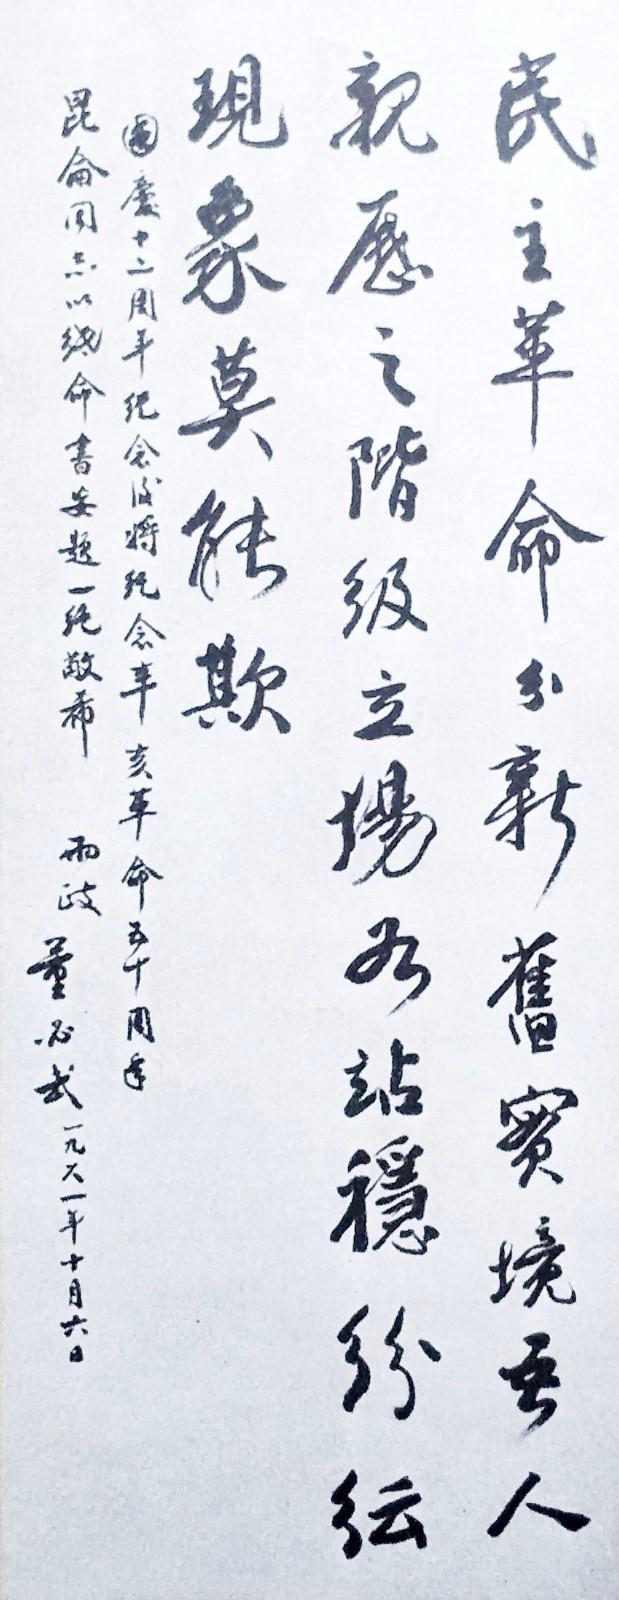 民主革命分新舊實境吾人
親歷之階級立場為站穩紛紜
現象莫能欺
國慶十二周年纪念後將纪念辛亥革命五十周年
昆侖同志以纸命書安題一绝敬希 兩政 董必武 一九六一年十月六日